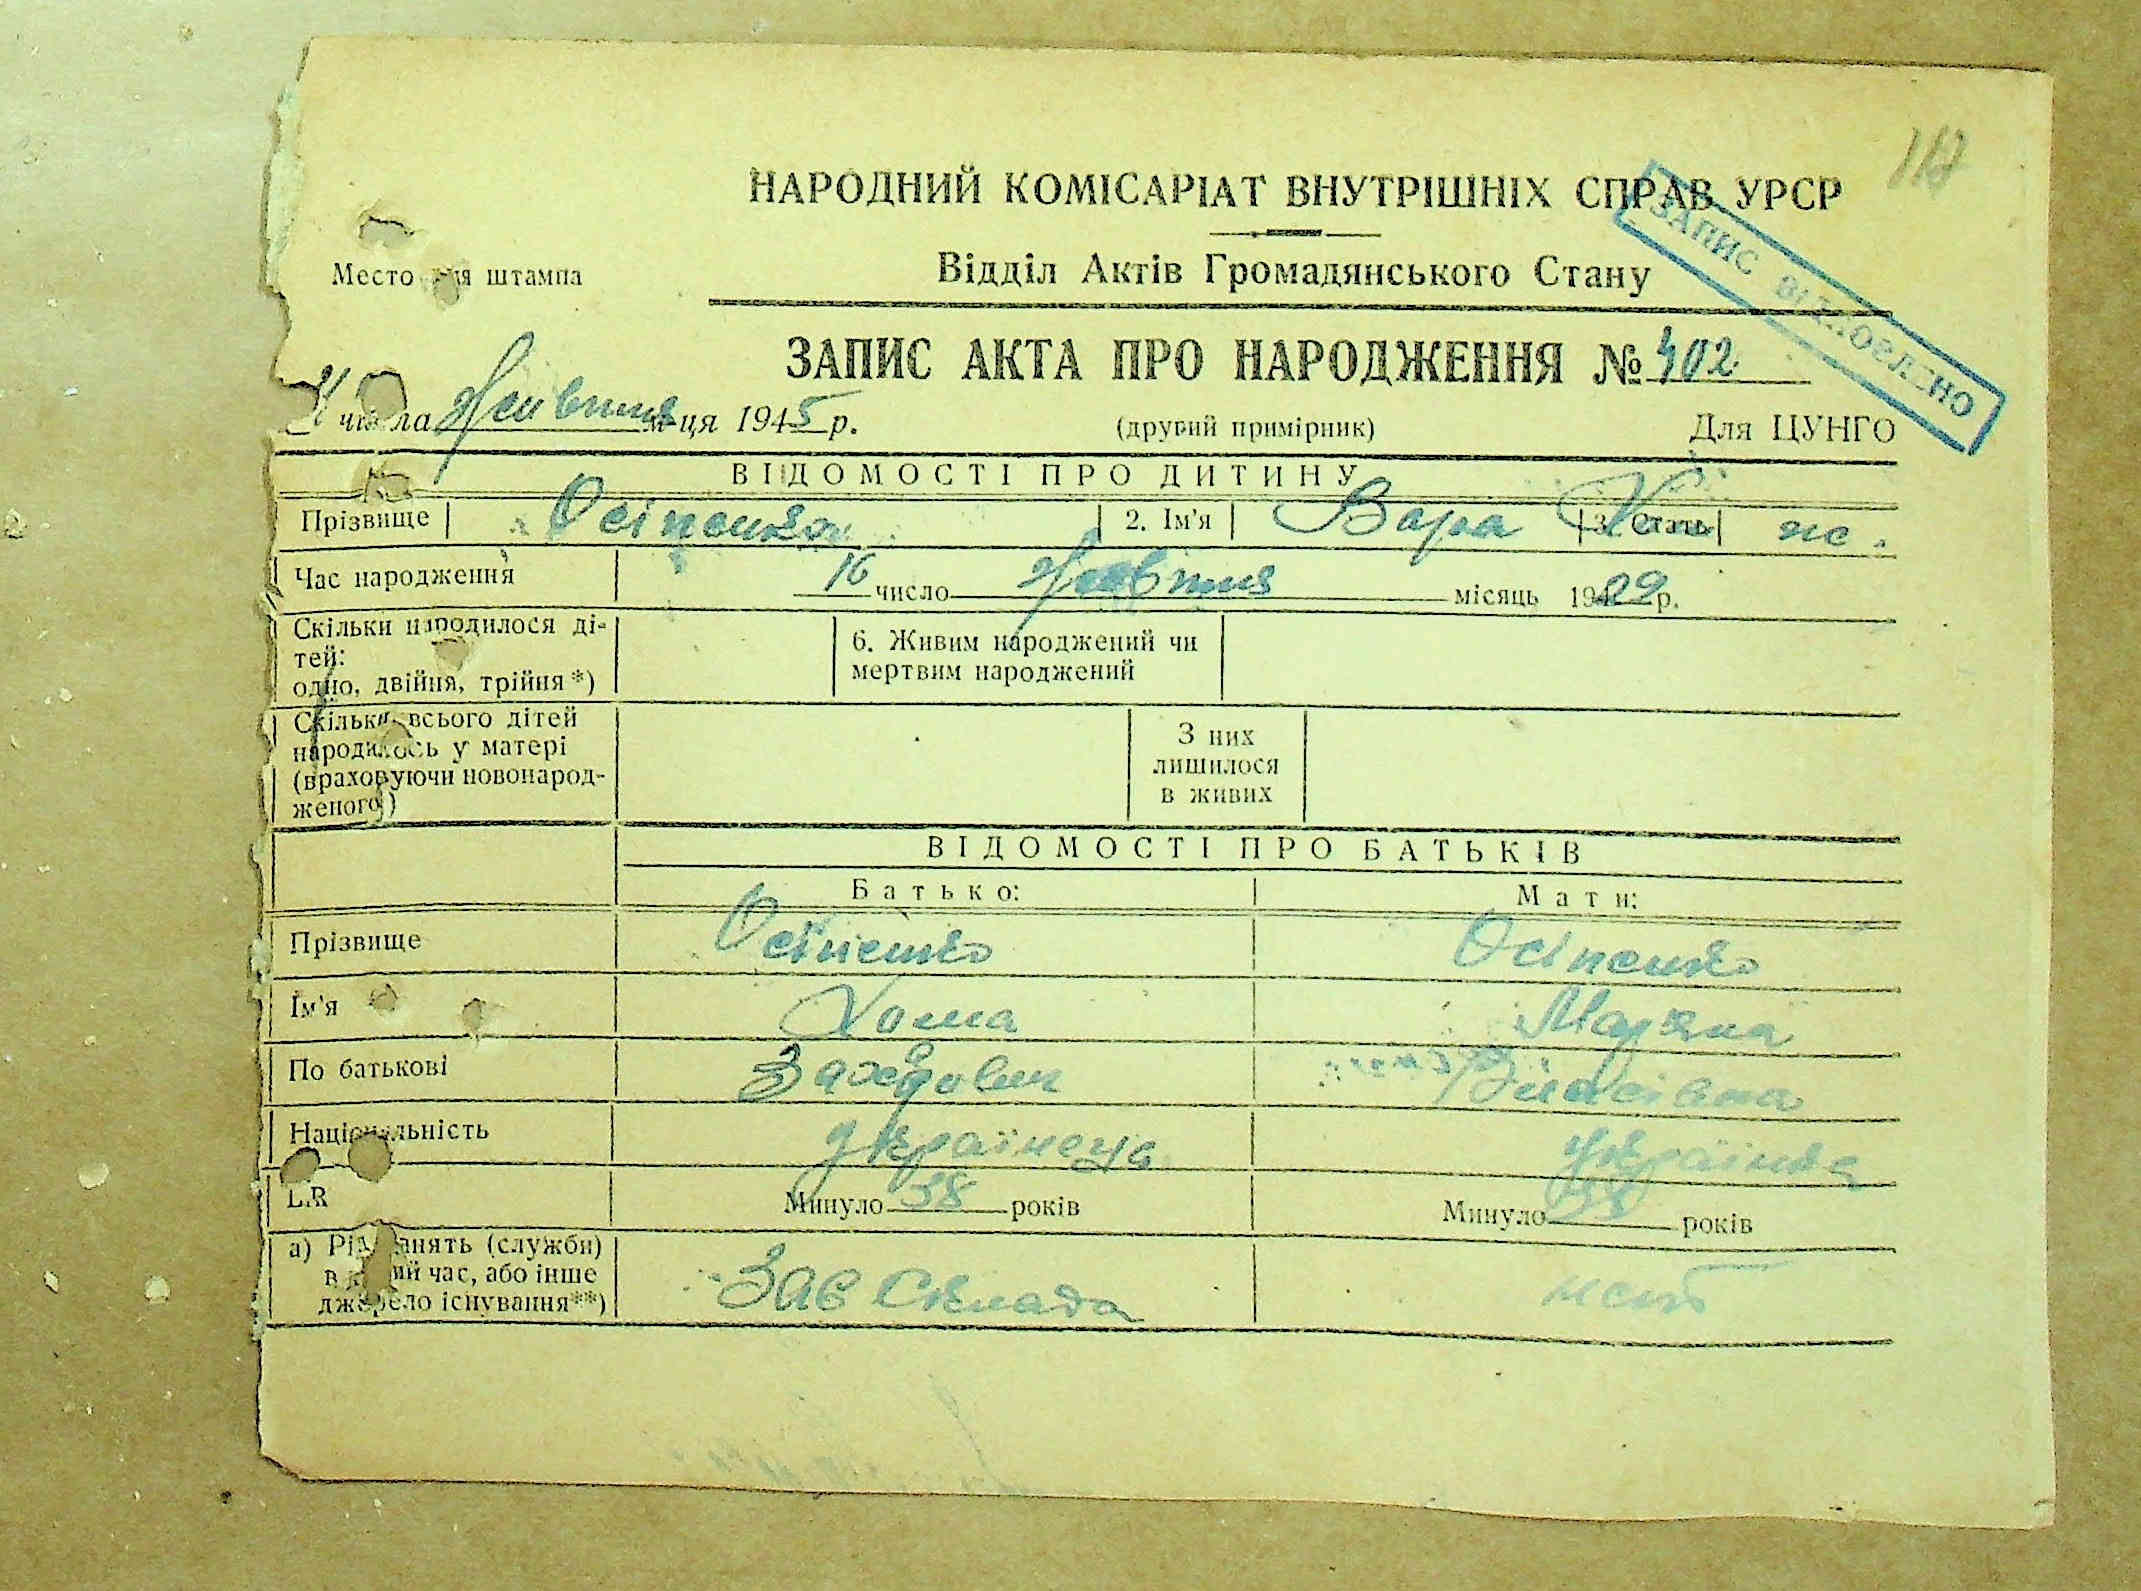 117
НАРОДНИЙ КОМІСАРІАТ ВНУТРІШНІХ СПРАВ УРСР
ЗАПИС ВІДНОВЛЕНО
Место для штампа
Відділ Актів Громадянського Стану
ЗАПИС АКТА ПРО НАРОДЖЕННЯ № 402
числа Жовтня м-ця 1945 р. (другий примірник) Для ЦУНГО
ВІДОМОСТІ ПРО ДИТИНУ
Прізвище Осіпенко 2. Ім'я Вара Хом 3. Стать жс.
Час народження 16 число Жовтня місяць 1909 р.
Скільки народилося ді-
тей:
одно, двійня, трійня*)
6. Живим народжений чи
мертвим народжений
Скільки всього дітей
народилось у матері
(враховуючи новонарод-
женого)
З них
лишилося
в живих
ВІДОМОСТІ ПРО БАТЬКІВ
Батько: Мати:
Прізвище Осіпенко Осіпенко
Ім'я Хома Мар'яна
По батькові Власівна
Національність Українець Українка
Вік Минуло 38 років Минуло років
а) Рід занять (служби)
в даний час, або інше
джерело існування**)
Зав Склада